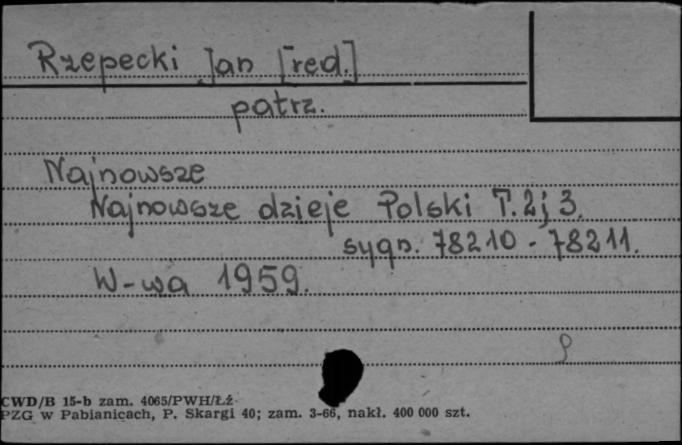 Rzepecki Jan [red.]
patrz.
Najnowsze
Najnowsze dzieje Polski T. 2 i 3.
sygn. 78210 - 78211.
W-wa 1959.
CWD/B 15-b zam. 4065/PWH/Łź
PZG w Pabianicach, P. Skargi 40; zam. 3-66, nakł. 400 000 szt.